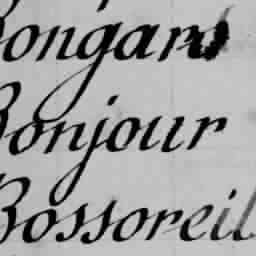 Bongard
Bonjour
Bossoreil